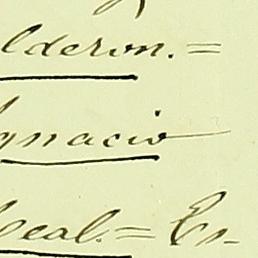 lderon. =
gnacio
eal. = Es-